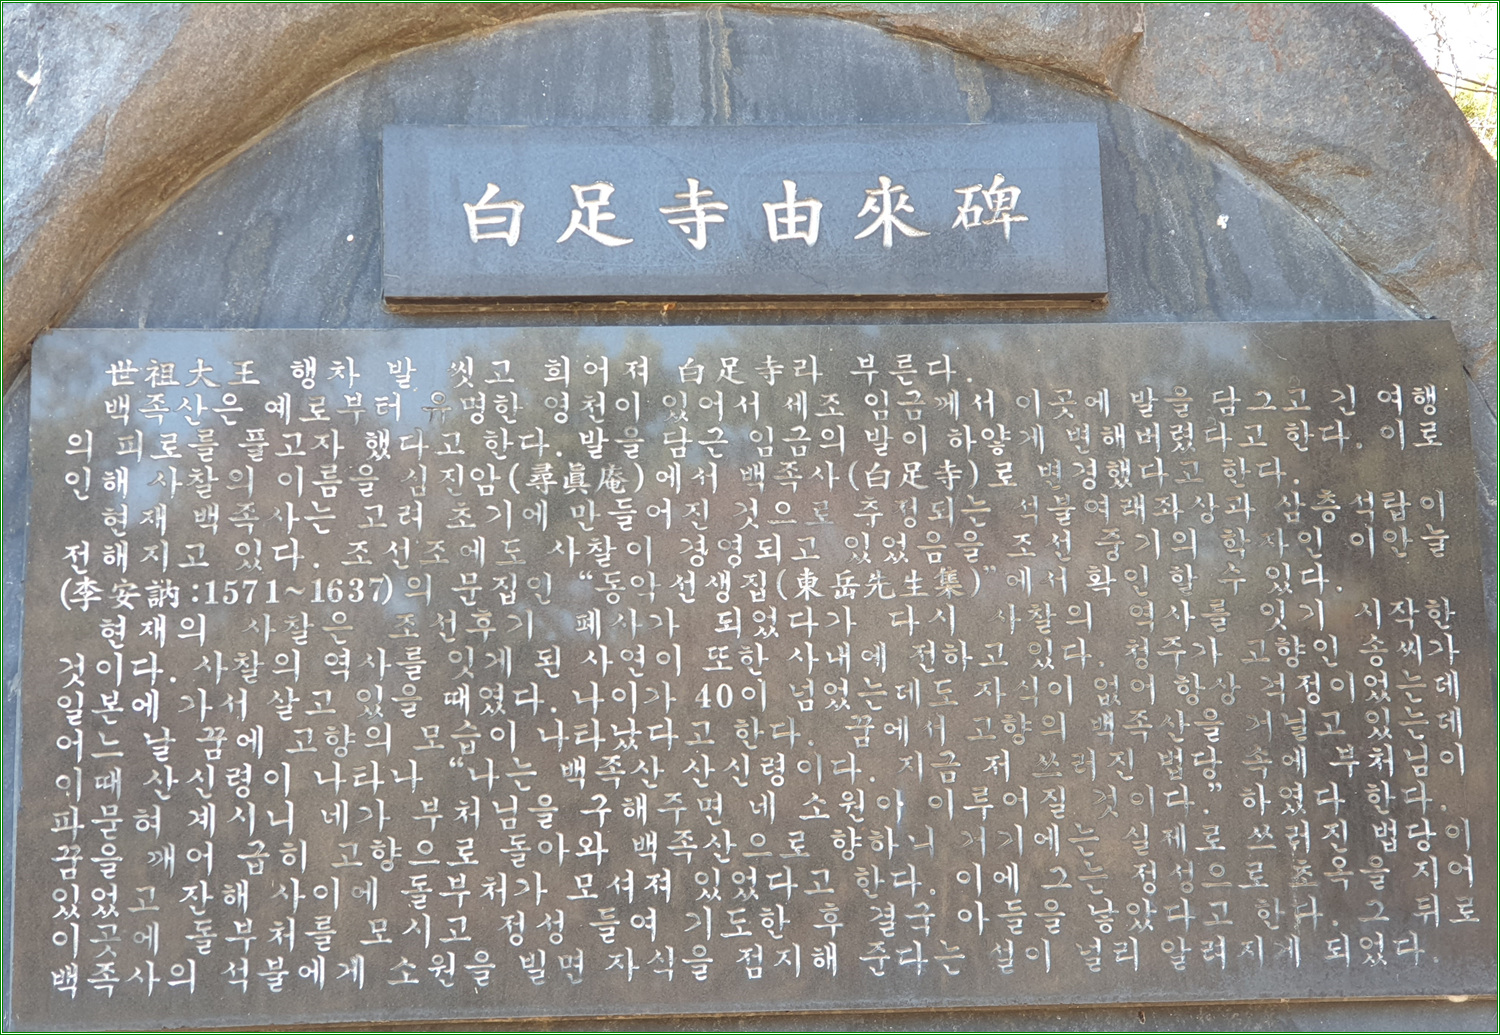 白足寺由來碑
世祖大王 행차 발 씻고 희어져 白足寺라 부른다.
백족산은 예로부터 유명한 영천이 있어서 세조 임금께서 이곳에 발을 담그고 긴 여행
의 피로를 풀고자 했다고 한다.발을 담근 임금의 발이 하얗게 변해버렸다고 한다. 이로
인해 사찰의 이름을 심진암(尋眞庵)에서 백족사(白足寺)로 변경했다고 한다.
현재 백족사는 고려 초기에 만들어진 것으로 추정되는 석불여래좌상과 삼층석탑이
전해지고 있다. 조선조에도 사찰이 경영되고 있었음을 조선 중기의 학자인 이안눌
(李安訥:1571~1637)의 문집인 “동악선생집(東岳先生集)”에서 확인 할 수 있다.
현재의 사찰은 조선후기 폐사가 되었다가 다시 사찰의 역사를 잇기 시작한
것이다. 사찰의 역사를 잇게 된 사연이 또한 사내에 전하고 있다. 청주가 고향인 송씨가
일본에 가서 살고 있을 때였다. 나이가 40이 넘었는데도 자식이 없어 항상 걱정이었는데
어느 날 꿈에 고향의 모습이 나타났다고 한다. 꿈에서 고향의 백족산을 거닐고 있는데
이때 산신령이 나타나 “나는 백족산 산신령이다. 지금 저 쓰러진 법당 속에 부처님이
파묻혀 계시니 네가 부처님을 구해주면 네 소원이 이루어질 것이다.” 하였다 한다.
꿈을 깨어 급히 고향으로 돌아와 백족산으로 향하니 거기에는 실제로 쓰러진 법당이
있었고 잔해 사이에 돌부처가 모셔져 있었다고 한다. 이에 그는 정성으로 초옥을 지어
이곳에 돌부처를 모시고 정성 들여 기도한 후 결국 아들을 낳았다고 한다. 그 뒤로
백족사의 석불에게 소원을 빌면 자식을 점지해 준다는 설이 널리 알려지게 되었다.